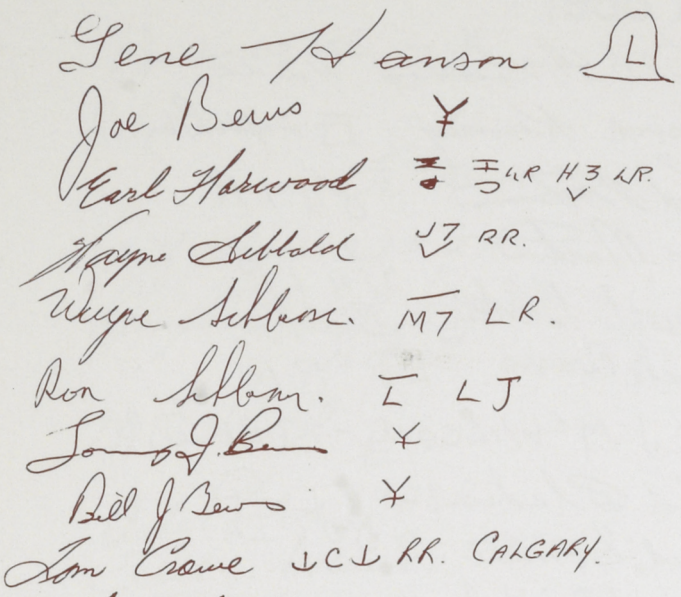 Gene Hanson L
Joe Bews ¥
Earl Harwood LR H3 LR.
Wayne Sibbald J7 RR.
Wayne M7 LR.
Ron L LJ
J. Bews ¥
Bill J Bews ¥
Tom Crowe ↓C↓ RR. CALGARY.